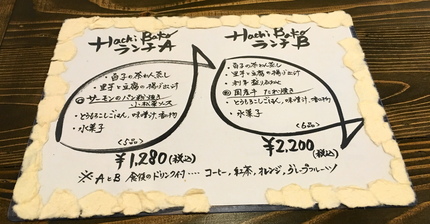 Hachi Bako
ランチA
・百子の茶わん蒸し
・里芋と豆腐の揚げ出し
サーモンのパン粉焼き
小松菜ソース
・とうもろこしごはん、味噌汁、香の物
・水菓子
¥1,280(税込)
Hachi Bako
ランチB
・百子の茶わん蒸し
・里芋と豆腐の揚げ出し
・お刺身盛り合わせ
国産牛
・とうもろこしごはん、味噌汁、香の物
・水菓子
¥2,200(税込)
※AとB 食後のドリンク付‥‥コーヒー,紅茶,オレンジ,グレープフルーツ